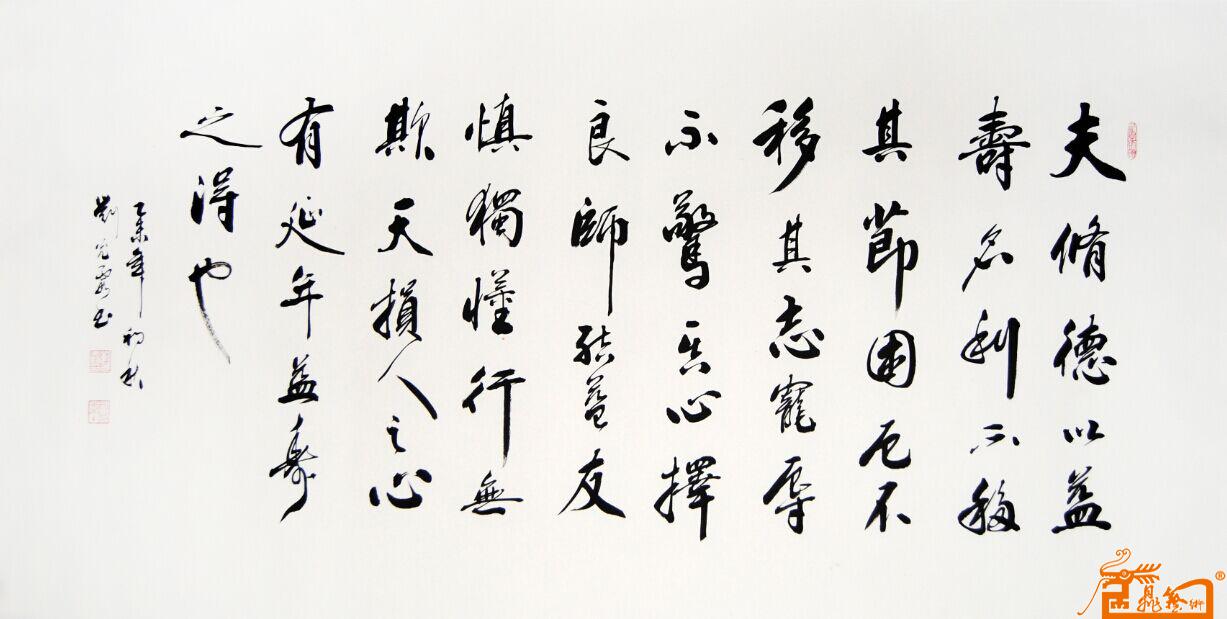 夫脩德以益
壽名利不移
其節困厄不
移其志寵辱
不驚其心擇
良師結益友
慎獨慬行無
欺天損人之心
有延年益壽
之得也
乙未年初秋